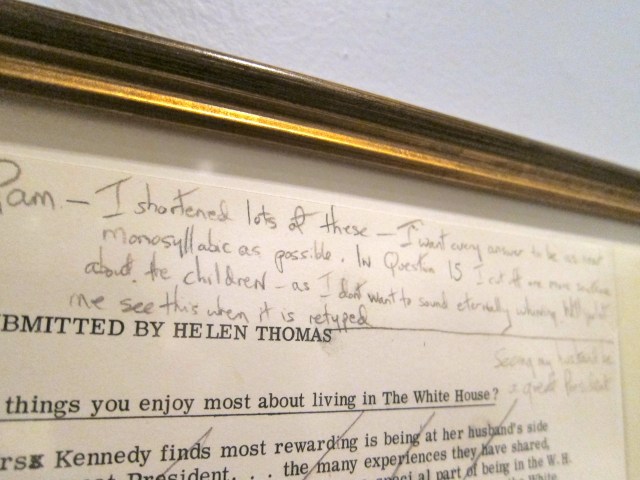 Pam. — I shortened lots of these — I want every answer to be as
monosyllabic as possible. In Question 15 I cut
about the children - as I don't want to sound eternally
me see this when it is retyped
BMITTED BY HELEN THOMAS
Seeing my husband be
a great President
things you enjoy most about living in The White House?
rsx Kennedy finds most rewarding is being at her husband's side
President. . . the many experiences they have shared,
cial part of being in the W. H.
White